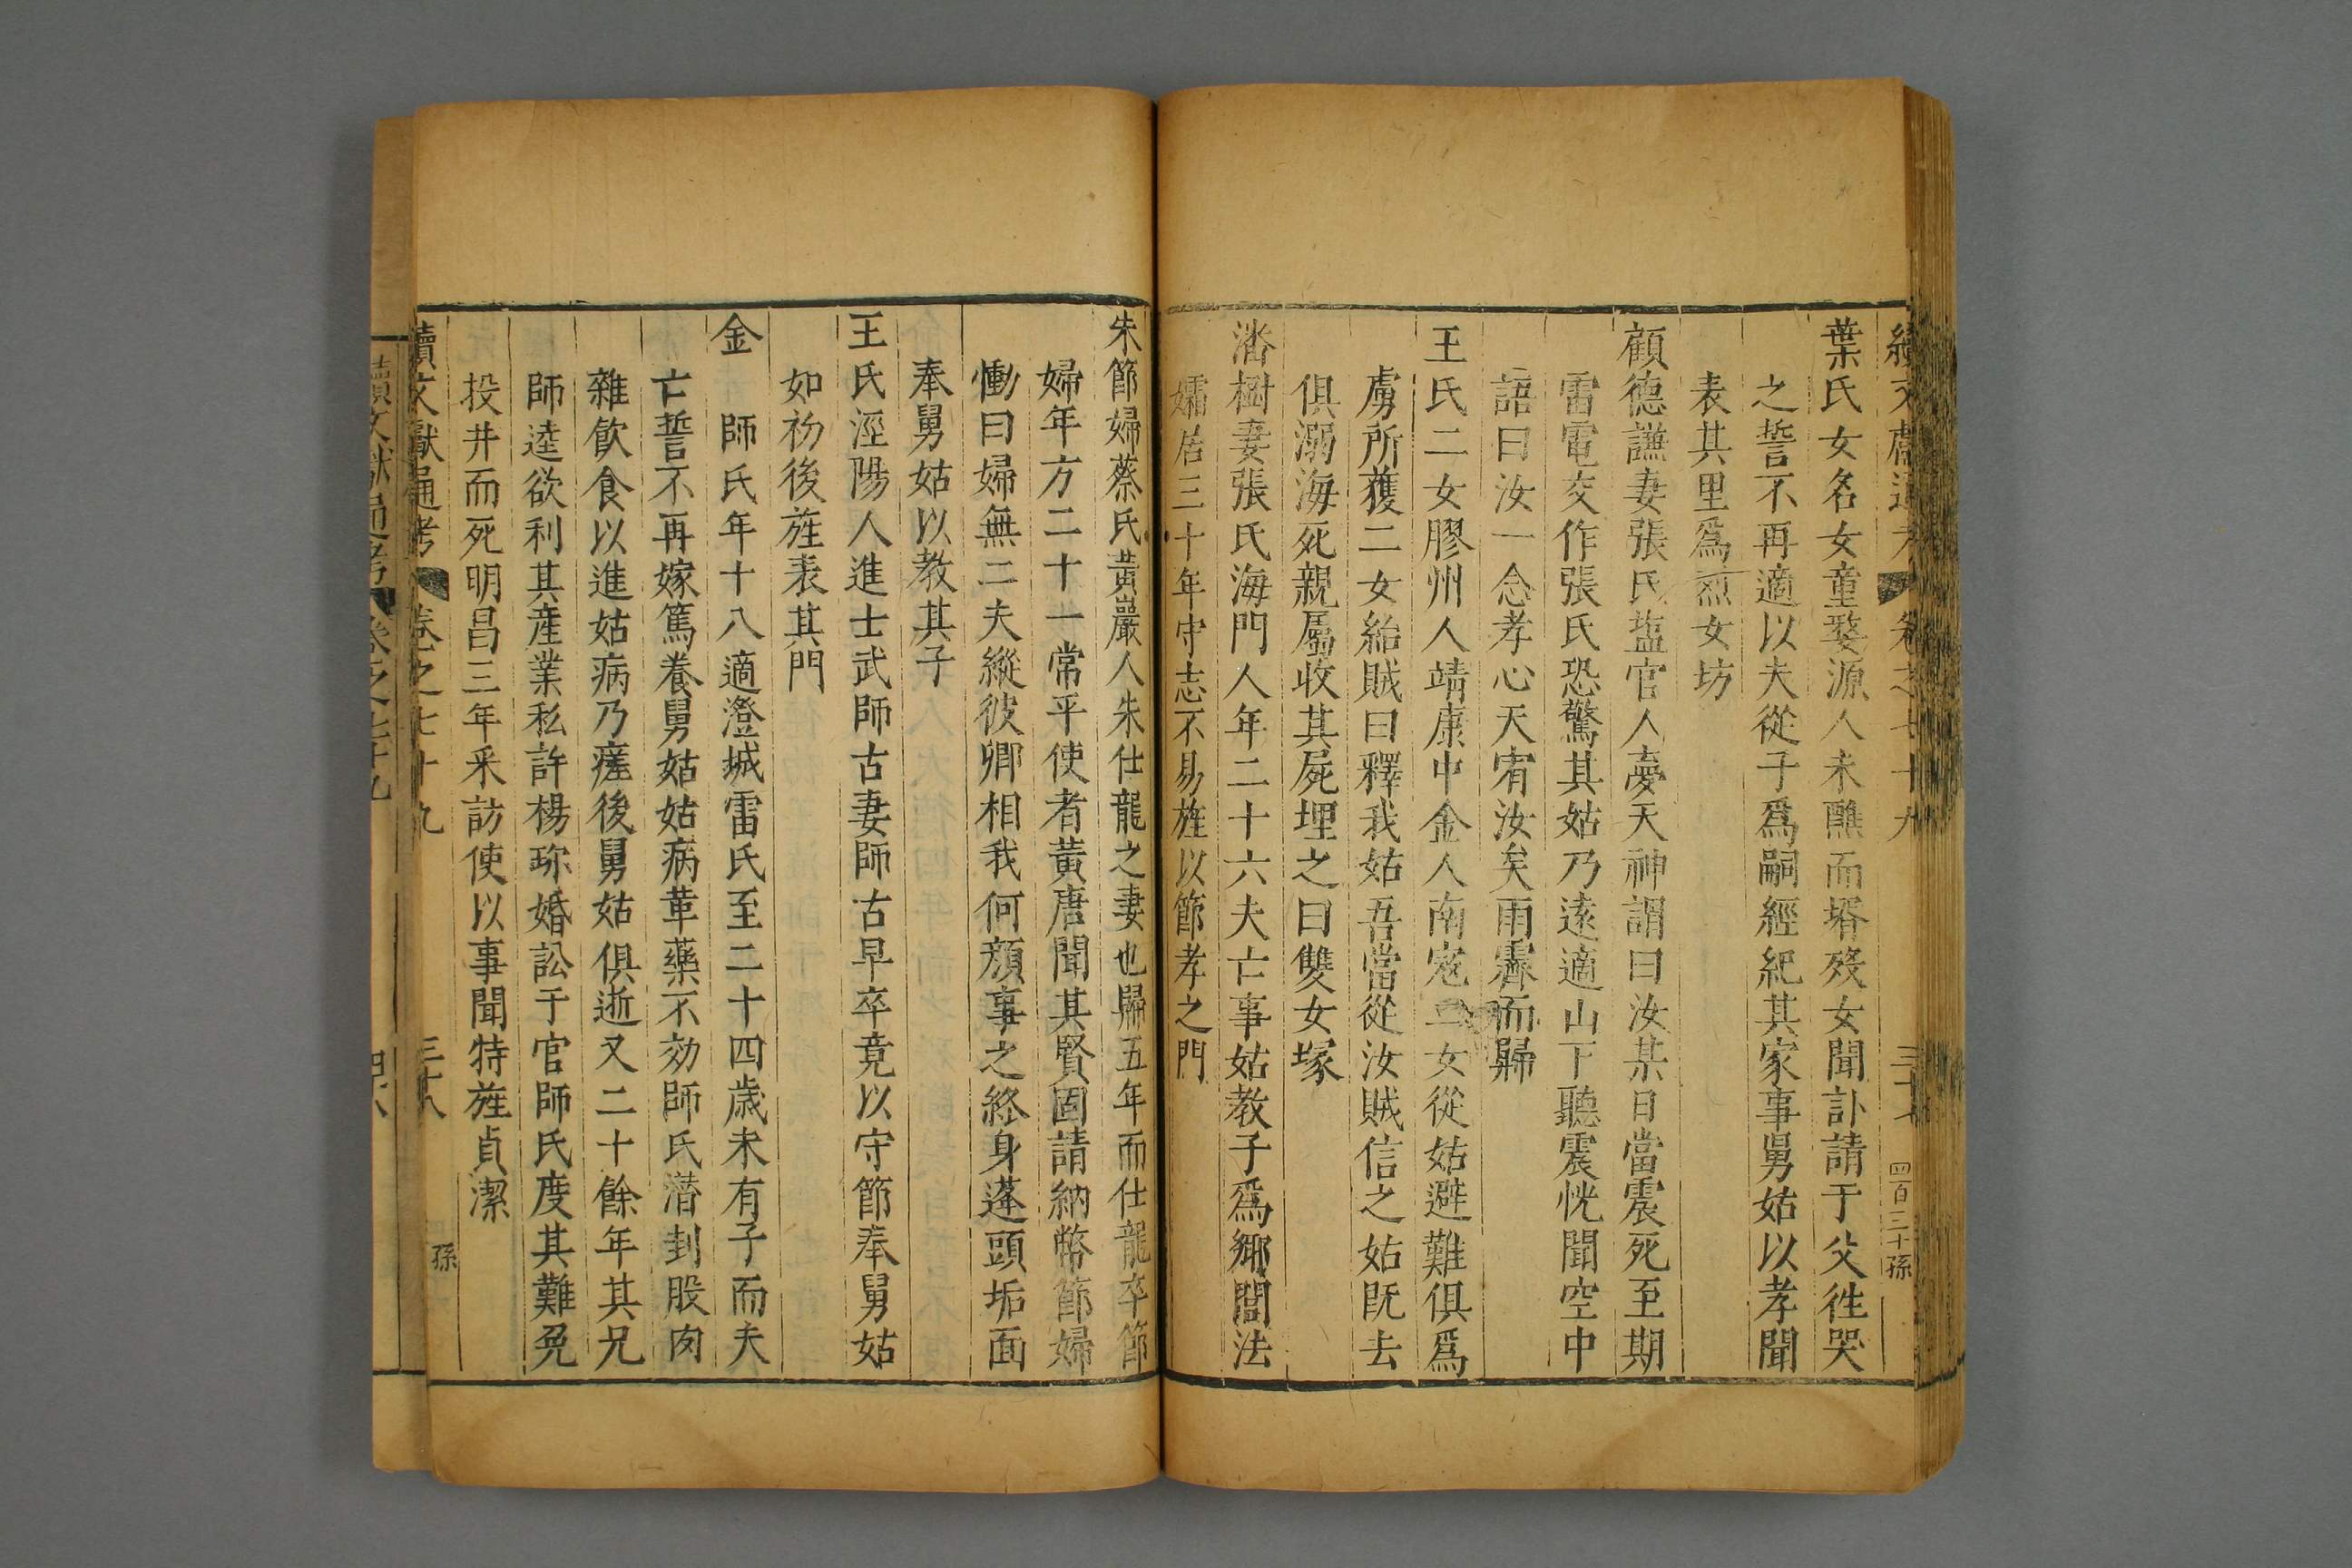 葉氏女名女童婺源人未醮而壻歿女聞訃請于父徃哭
之誓不再適以夫從子爲嗣經紀其家事舅姑以孝聞
表其里爲烈女坊
顧德謙妻張氏塩官人夢天神謂曰汝某日當震死至期
雷電交作張氏恐驚其姑乃遠適山下聽震恍聞空中
語曰汝一念孝心天宥汝矣雨霽而歸
王氏二女膠州人靖康中金人南寇二女從姑避難俱爲
虜所獲二女紿賊曰釋我姑吾當從汝賊信之姑旣去
俱溺海死親屬收其屍埋之曰雙女塚
潘樹妻張氏海門人年二十六夫亡事姑教子爲鄉閭法
孀居三十年守志不易旌以節孝之門
四百三十孫
朱節婦蔡氏黃巖人朱仕龍之妻也歸五年而仕龍卒節
婦年方二十一常平使者黃唐聞其賢固請納幣節婦
慟曰婦無二夫縱彼卿相我何顏事之終身蓬頭垢面
奉舅姑以教其子
王氏涇陽人進士武師古妻師古早卒竟以守節奉舅姑
如初後旌表其門
金
師氏年十八適澄城雷氏至二十四歲未有子而夫
亡誓不再嫁篤養舅姑姑病革藥不効師氏潜刲股肉
雜飮食以進姑病乃瘥後舅姑俱逝又二十餘年其兄
師逵欲利其產業私許楊珎婚訟于官師氏度其難免
投井而死明昌三年采訪使以事聞特旌貞潔
續文獻通考 卷之七十九 三十八 孫